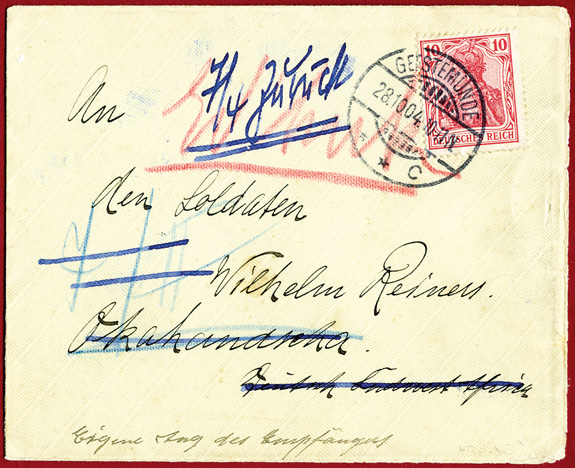 10 10
DEUTSCHES REICH
GEESTEMÜNDE
28.10.04
* C
7/4 Zurück
An
den Soldaten
Wilhelm Reiners.
Okahandscha.
Deutsch Südwest Afrika
Eigene Ang des Empfängers